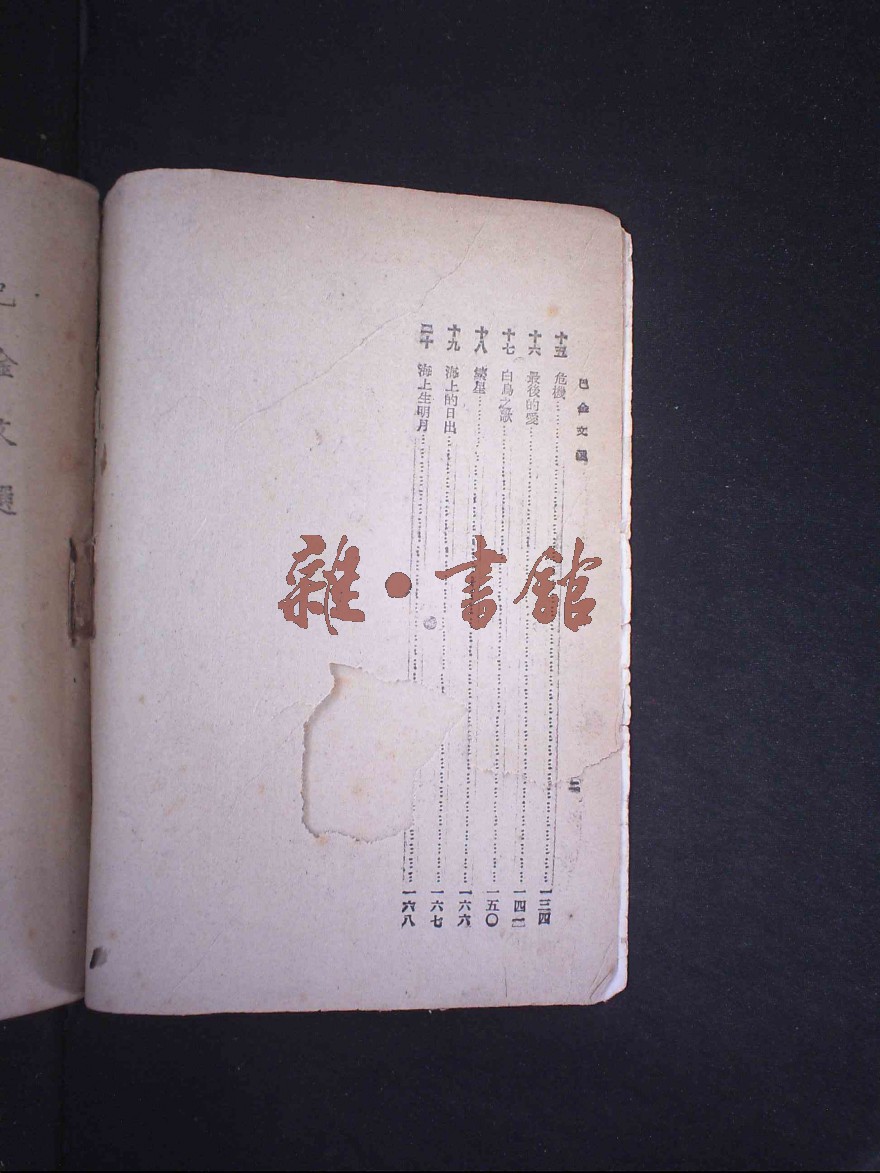 巴金文選
二
十五 危機……一三四
十六 最後的愛……一四二
十七 白鳥之歌……一五〇
十八 繁星……一六六
十九 海上的日出……一六七
二十 海上生明月……一六八
雜·書館
金文選